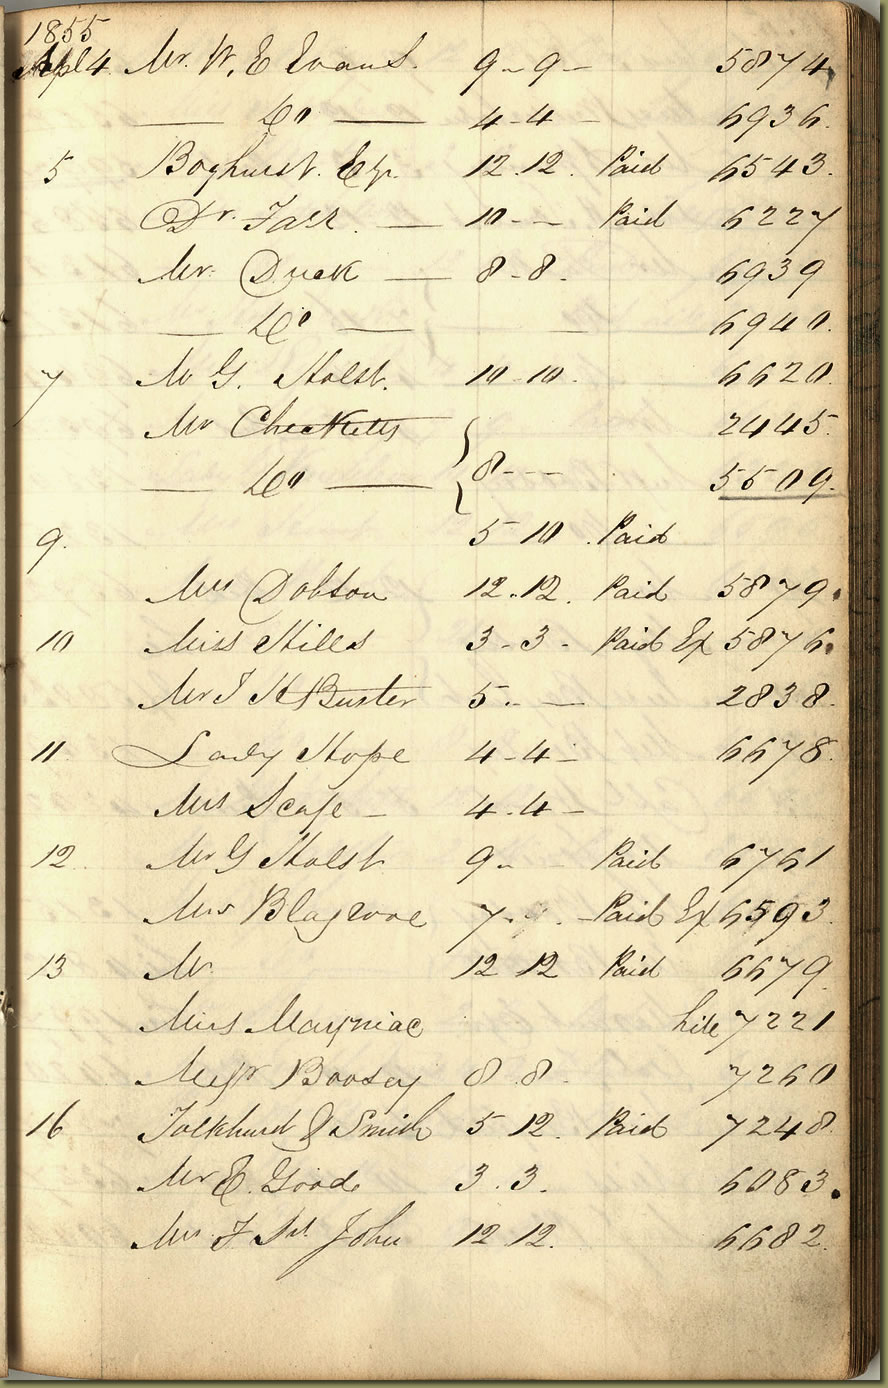 1855
Apl 4 Mr. W. E Evans. 9 - 9 - 5874
— Do — 4 - 4 - 6936.
5 Boghurst. Esqr. 12.12. Paid 6543.
Dr. Farr. — 10 - - Paid 6227
Mr. Duck — 8 - 8 - 6939
— Do — — 6940.
7 Mr G. Holst. 10 - 10. 6620.
Mr Checketts 2445.
— Do — { 8 - - - 5509.
9. 5 10 Paid
Mrs Dobson 12.12. Paid 5879.
10 Miss Hills 3 - 3 - Paid Ex 5876.
Mr J H Buster 5. - — 2838.
11 Lady Hope 4 - 4 - 6678.
Mrs Scafe — 4.4 -
12 Mr G Holst 9 - - Paid 6761
Mrs Blagrove 7 - 7. - Paid Ex 6593.
13 Mr. 12 12 Paid 6679.
Miss hire 7221
Messrs Boosey 8 8. 7260
16 & Smith 5 12. Paid 7248
Mr E. Good 3.3. 6083.
Mrs F St John 12 12. 6682.